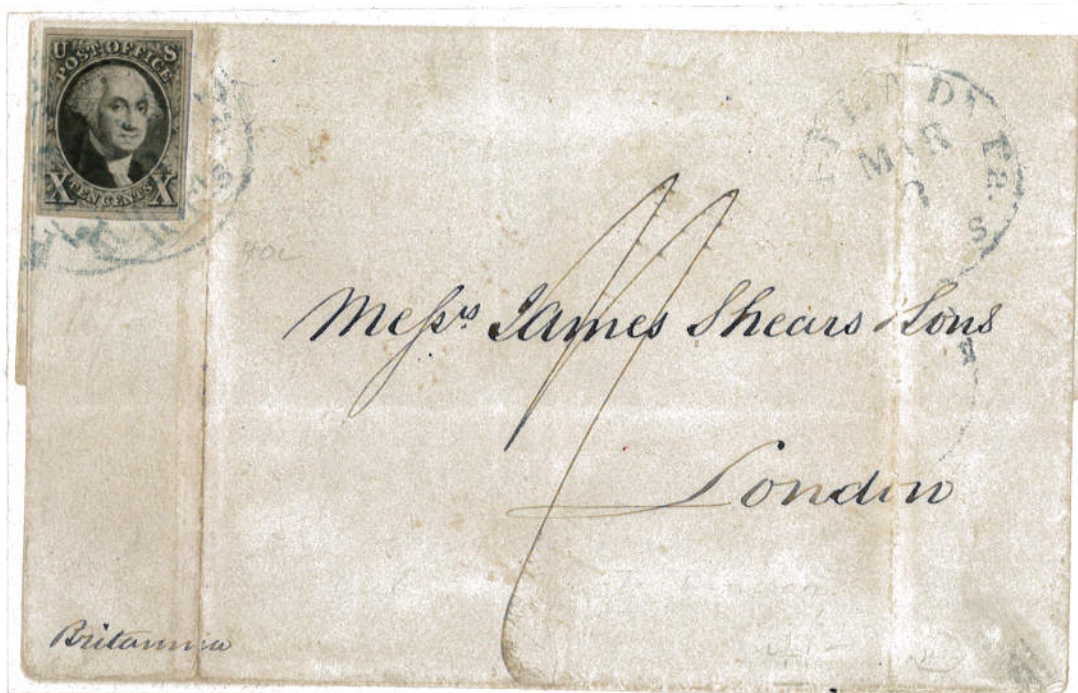 U S
POST OFFICE
X TEN CENTS X
MAR
S
40c
Messrs James Shears Sons
London
Britannia